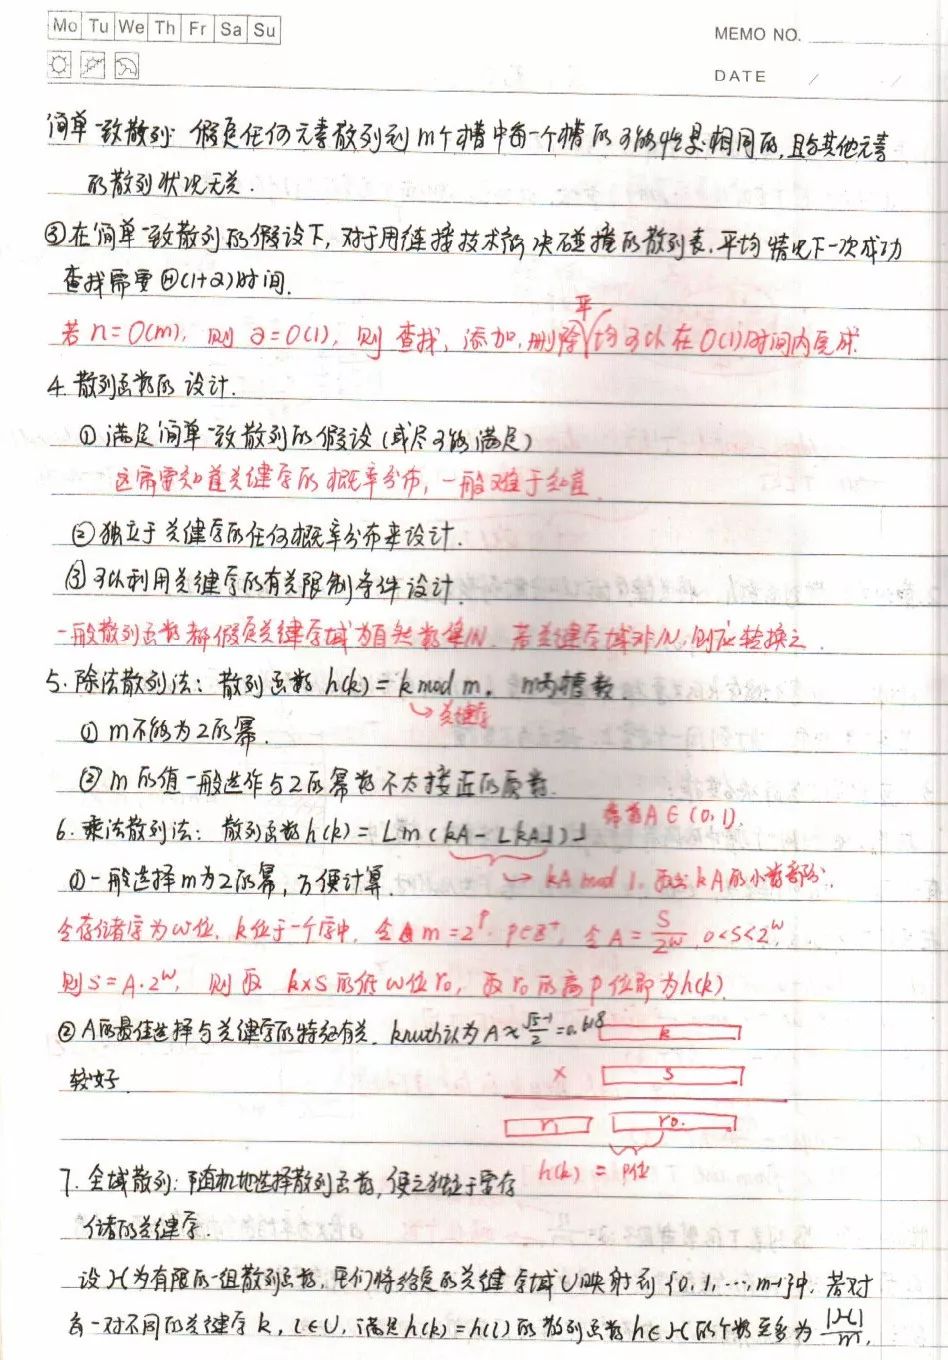 Mo Tu We Th Fr Sa Su
MEMO NO.
DATE / /
简单一致散列: 假定任何元素散列到m个槽中每一个槽的可能性是相同的,且与其他元素
的散列状况无关.
③在简单一致散列的假设下,对于用链接技术解决碰撞的散列表,平均情况下一次成功
查找需要Θ(1+α)时间.
平
若n=O(m), 则α=O(1), 则查找,添加,删除均可以在O(1)时间内完成
4.散列函数的设计.
①满足简单一致散列的假设(或尽可能满足)
这需要知道关键字的概率分布,一般难于知道
②独立于关键字的任何概率分布来设计.
③可以利用关键字的有关限制条件设计.
一般散列函数都假定关键字域为自然数集N. 若关键字域非N,则应转换之.
5.除法散列法: 散列函数h(k)=k mod m. m为槽数.
→关键字
①m不能为2的幂.
②m的值一般选作与2的幂都不太接近的质数.
常数A∈(0,1).
6.乘法散列法: 散列函数h(k)=⌊m(kA-⌊kA⌋)⌋
①一般选择m为2的幂,方便计算. → kA mod 1. 取出kA的小数部分.
令存储字为w位, k位于一个字中, 令m=2^p. p∈Z⁺, 令A=S/2^w, 0<S<2^w
则S=A·2^w, 则取k×S的低w位r₀, 取r₀的高p位即为h(k)
②A的最佳选择与关键字的特征有关. knuth认为A≈(√5-1)/2=0.618
较好.
k
× S
r₁ r₀.
h(k) = p位
7.全域散列: 随机地选择散列函数,使之独立于要存
储的关键字.
设H为有限的一组散列函数,它们将给定的关键字域U映射到{0,1,…,m-1}中. 若对
每一对不同的关键字k, l∈U, 满足h(k)=h(l)的散列函数h∈H的个数至多为|H|/m,